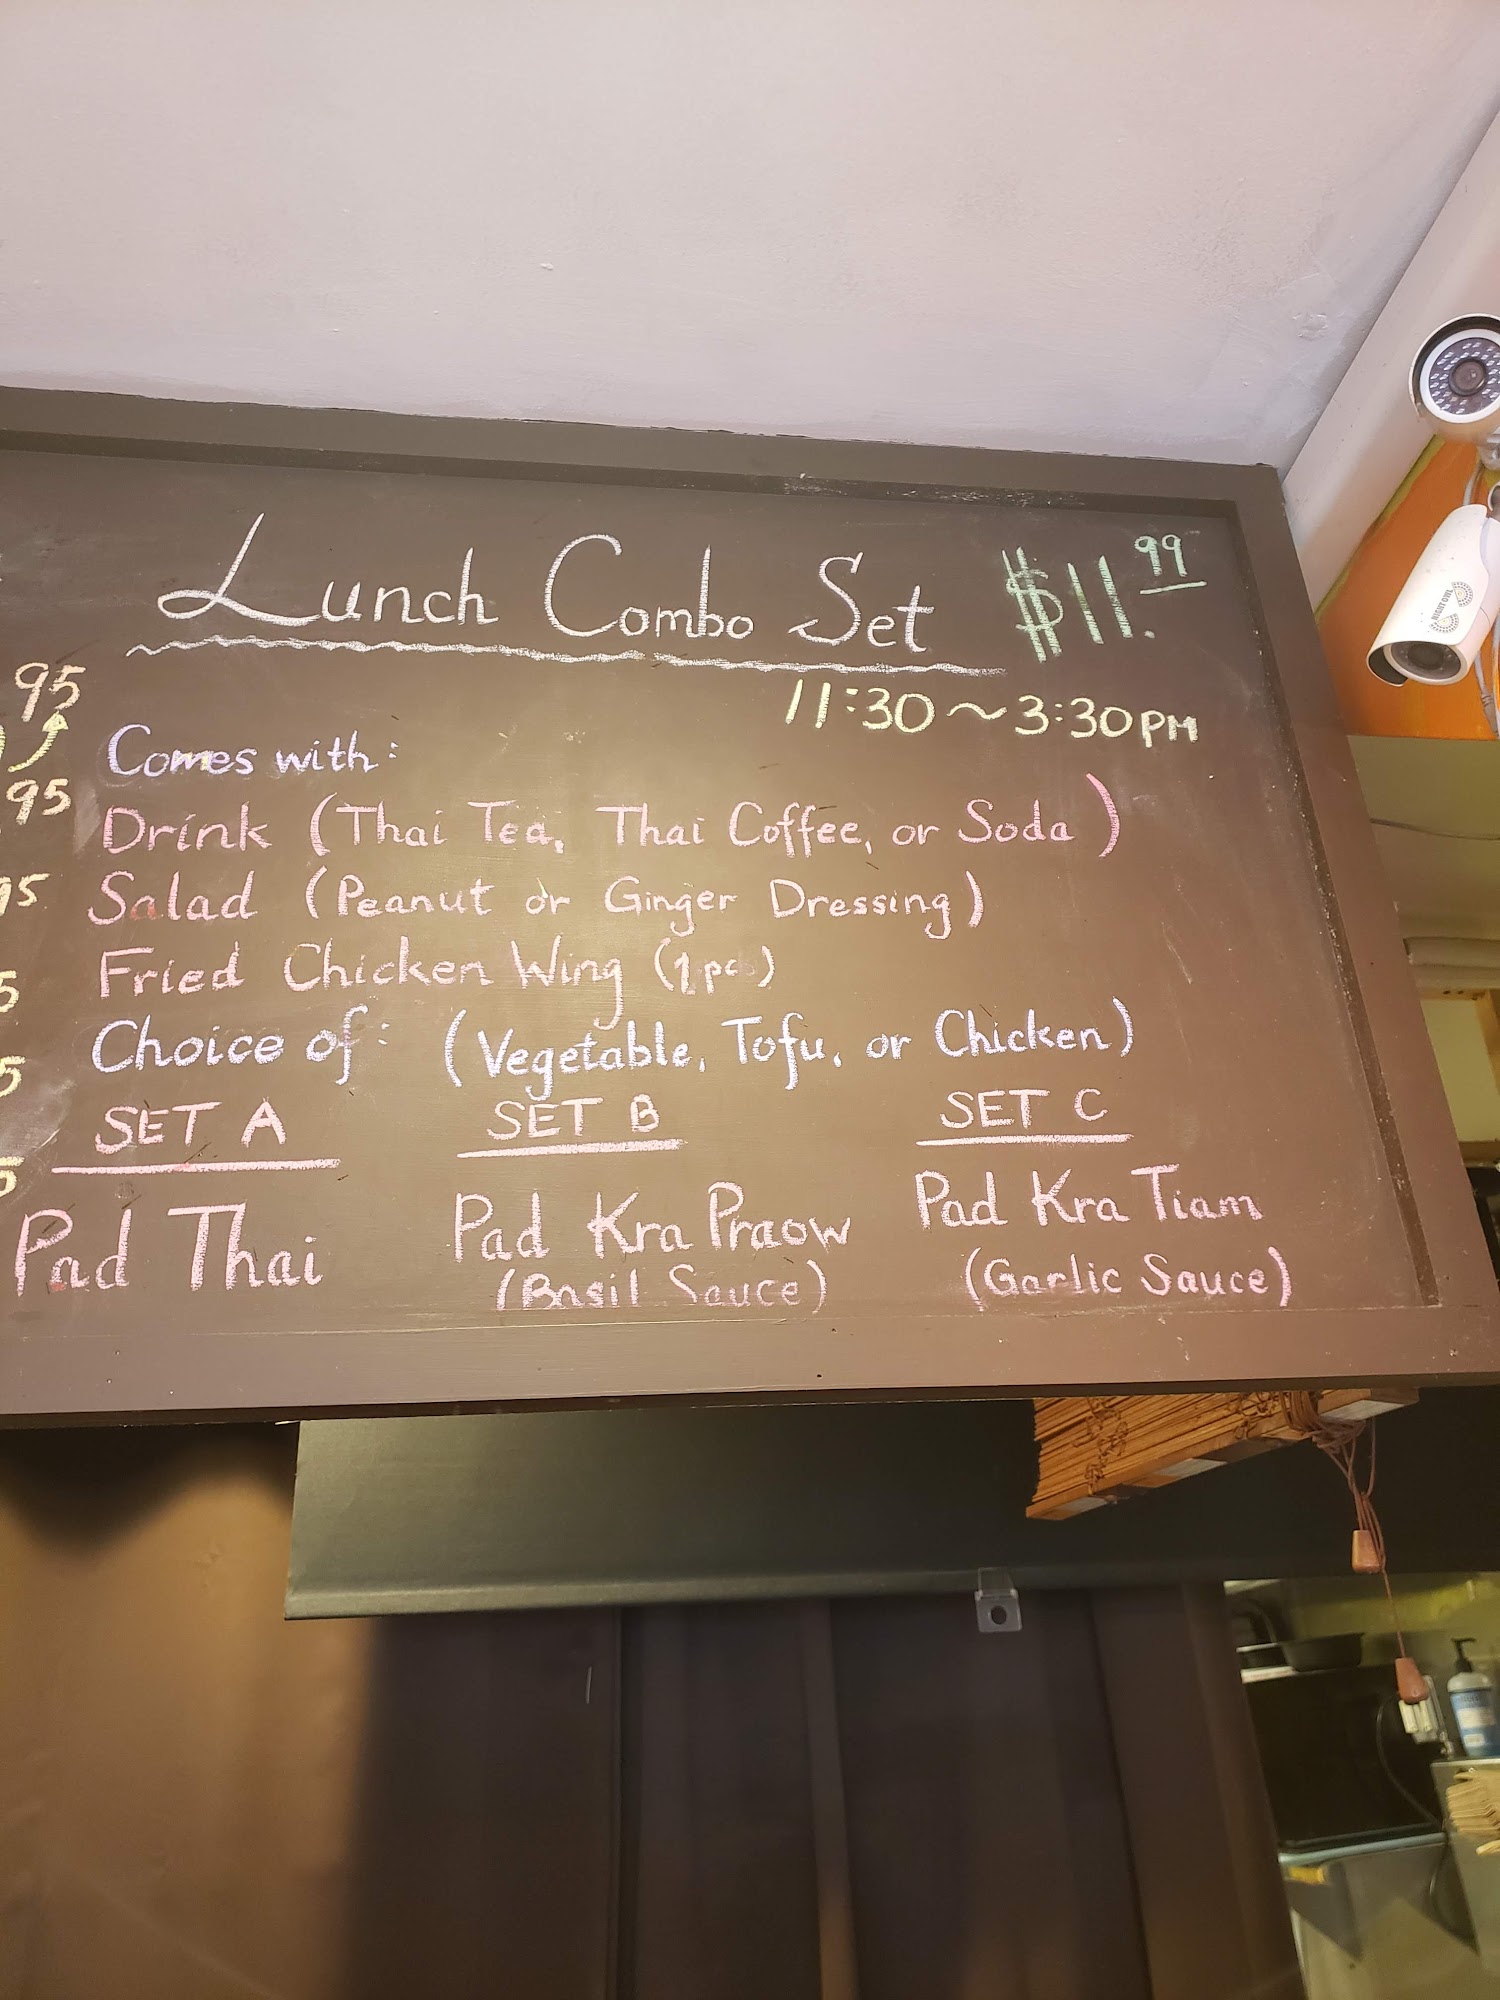 Lunch Combo Set $11.99
11:30~3:30PM
95
95
95
5
5
5
Comes with:
Drink (Thai Tea, Thai Coffee, or Soda)
Salad (Peanut or Ginger Dressing)
Fried Chicken Wing (1 pc)
Choice of: (Vegetable, Tofu, or Chicken)
SET A SET B SET C
Pad Thai Pad Kra Praow Pad Kra Tiam
(Basil Sauce) (Garlic Sauce)
NIGHT OWL